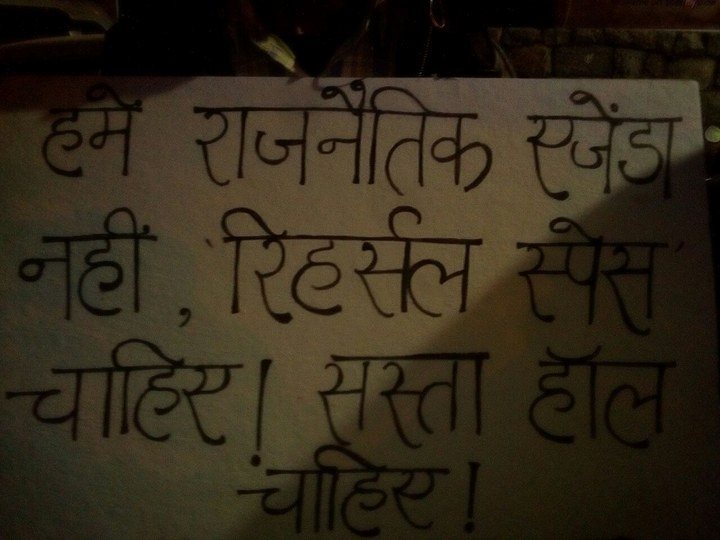 हमें राजनैतिक एजेंडा
नहीं, 'रिहर्सल स्पेस'
चाहिए! सस्ता हॉल
चाहिए!